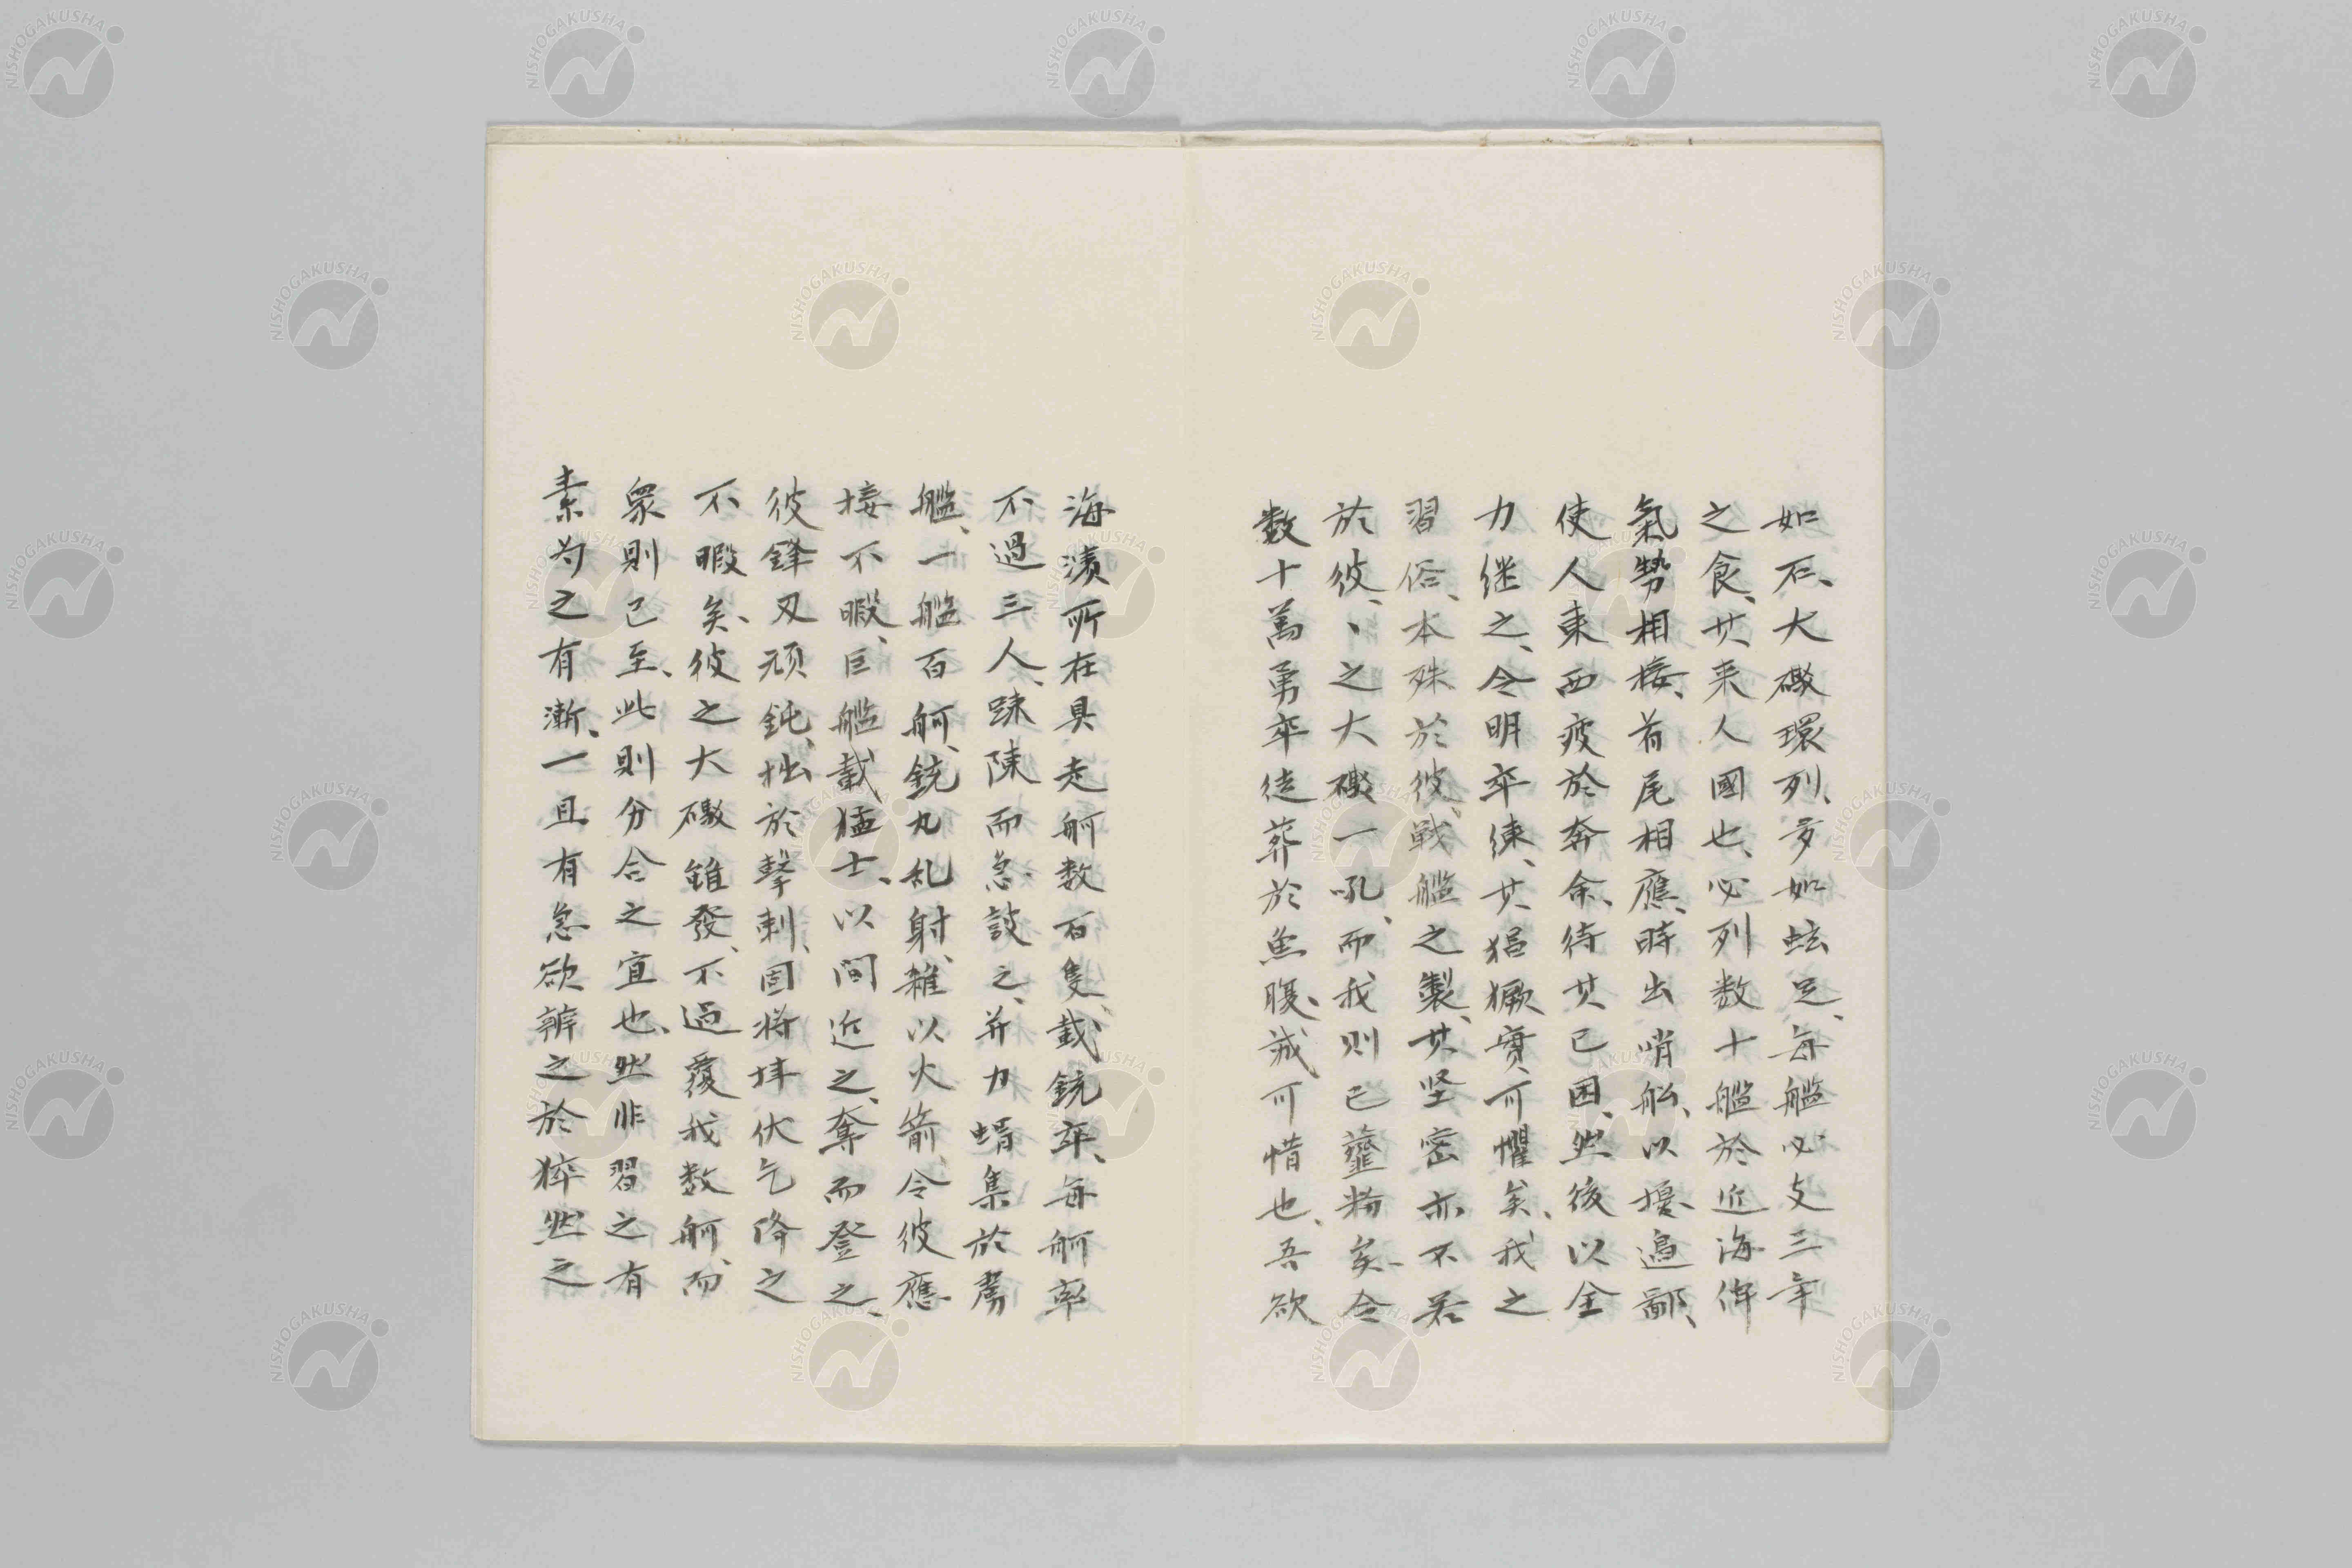 如石、大礮環列、多如蚿足、每艦必支三年
之食、其来人國也、必列数十艦於近海俾
氣勢相接、首尾相應、時出哨船、以擾邊鄙、
使人東西疲於奔命、待其已困、然後以全
力継之、令明卒練、其猖獗實可懼矣、我之
習俗、本殊於彼、戦艦之製、其坚密亦不若
於彼、〻之大礮一吼、而我則已虀粉矣、令
数十萬勇卒徒葬於魚腹、誠可惜也、吾欲
海濱所在具走舸数百隻、載銃卒、每舸率
不過三人、疎陳而急設之、并力蝟集於虜
艦、一艦百舸、銃丸乱射、雑以火箭、令彼應
接不暇、巨艦載猛士、以間近之、奪而登之、
彼鋒刃頑鈍、拙於擊刺、固将拝伏乞降之
不暇矣、彼之大礮雖發、不過覆我数舸、而
衆則已至、此則分合之宜也、然非習之有
素為之有漸、一旦有急欲辨之於猝然之
NISHOGAKUSHA